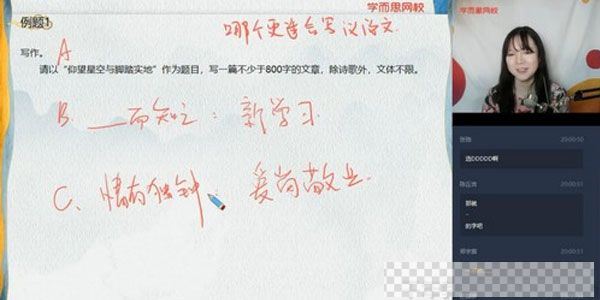 例题1
学而思网校
哪个更适合写议论文
写作。
A
请以“仰望星空与脚踏实地”作为题目，写一篇不少于800字的文章，除诗歌外，文体不限。
B. 一而知之：新学习.
C、情有独钟 爱岗敬业.
学而思网校
20:00:50
选CCCCC啊
陈正清
20:00:51
那就
-
的字吧
20:00:51